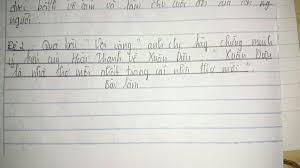 điều bình về làm và làm cho cuộc đời của con ng
người.
Đề 2: Qua bài "Vội vàng" anh chị hãy chứng minh
ý kiến của Hoài Thanh về Xuân Diệu "Xuân Diệu
là nhà thơ mới nhất trong các nhà thơ mới".
Bài làm